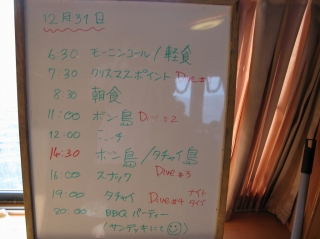 12月31日
6:30 モーニンコール/軽食
7:30 クリスマスポイント Dive#1
8:30 朝食
11:00 ボン島 Dive#2
12:00 ランチ
14:30 ボン島/タチャイ島
16:00 スナック Dive#3
19:00 タチャイ Dive#4 ナイトダイブ
20:00 BBQ パーティー
(サンデッキにて☺)